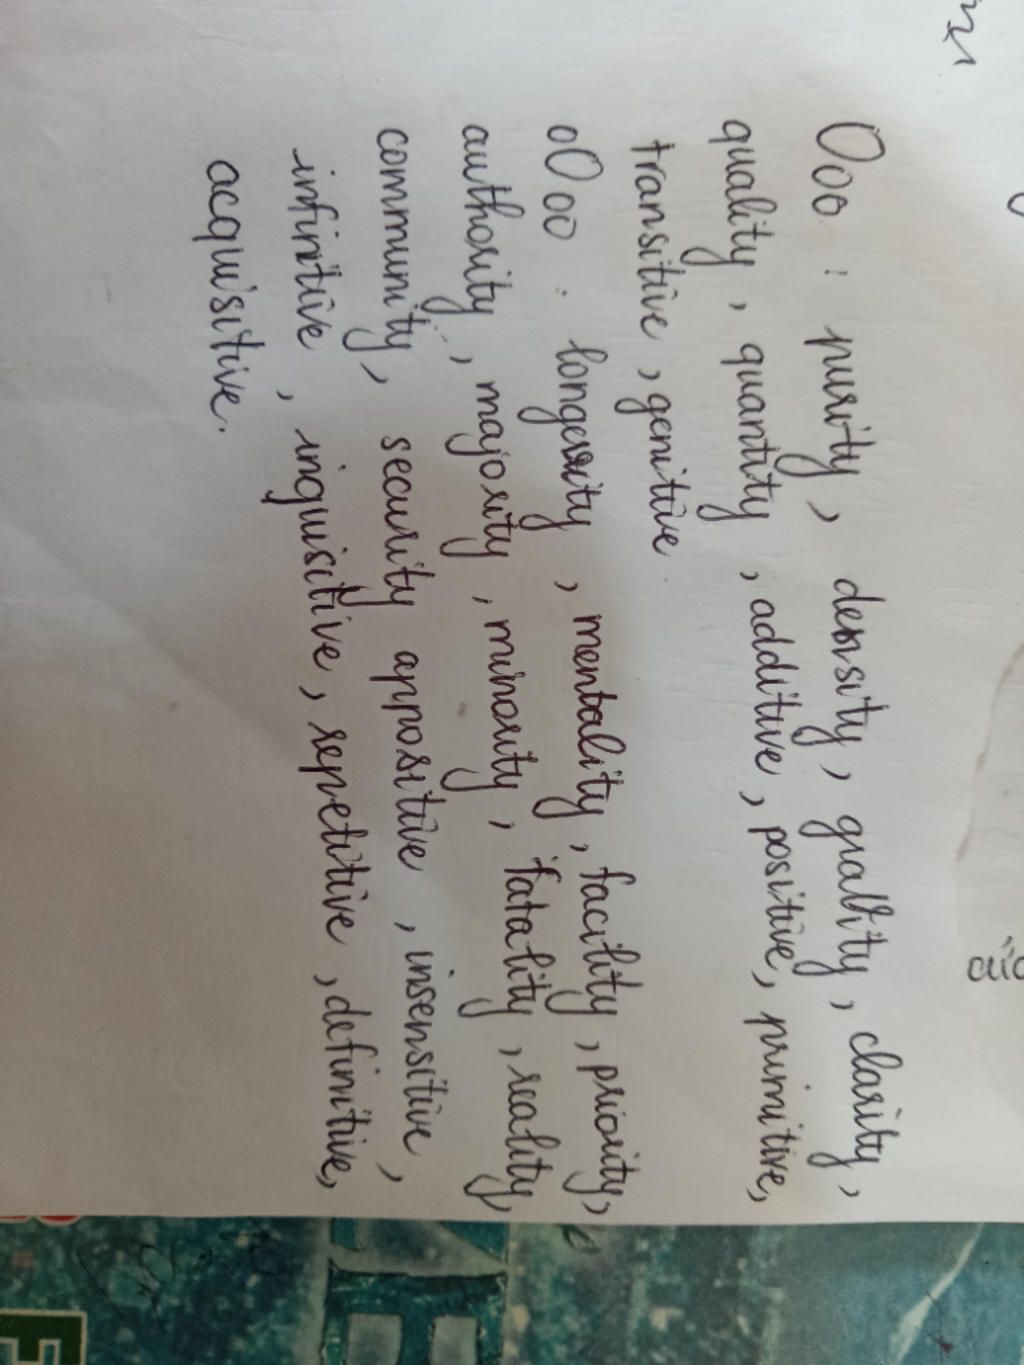 Ooo : purity, density, gravity, clarity,
quality, quantity, additive, positive, primitive,
transitive, genitive.
oOoo : longevity, mentality, facility, priority,
authority, majority, minority, fatality, reality,
community, security appositive, insensitive,
infinitive, inquisitive, repetitive, definitive,
acquisitive.